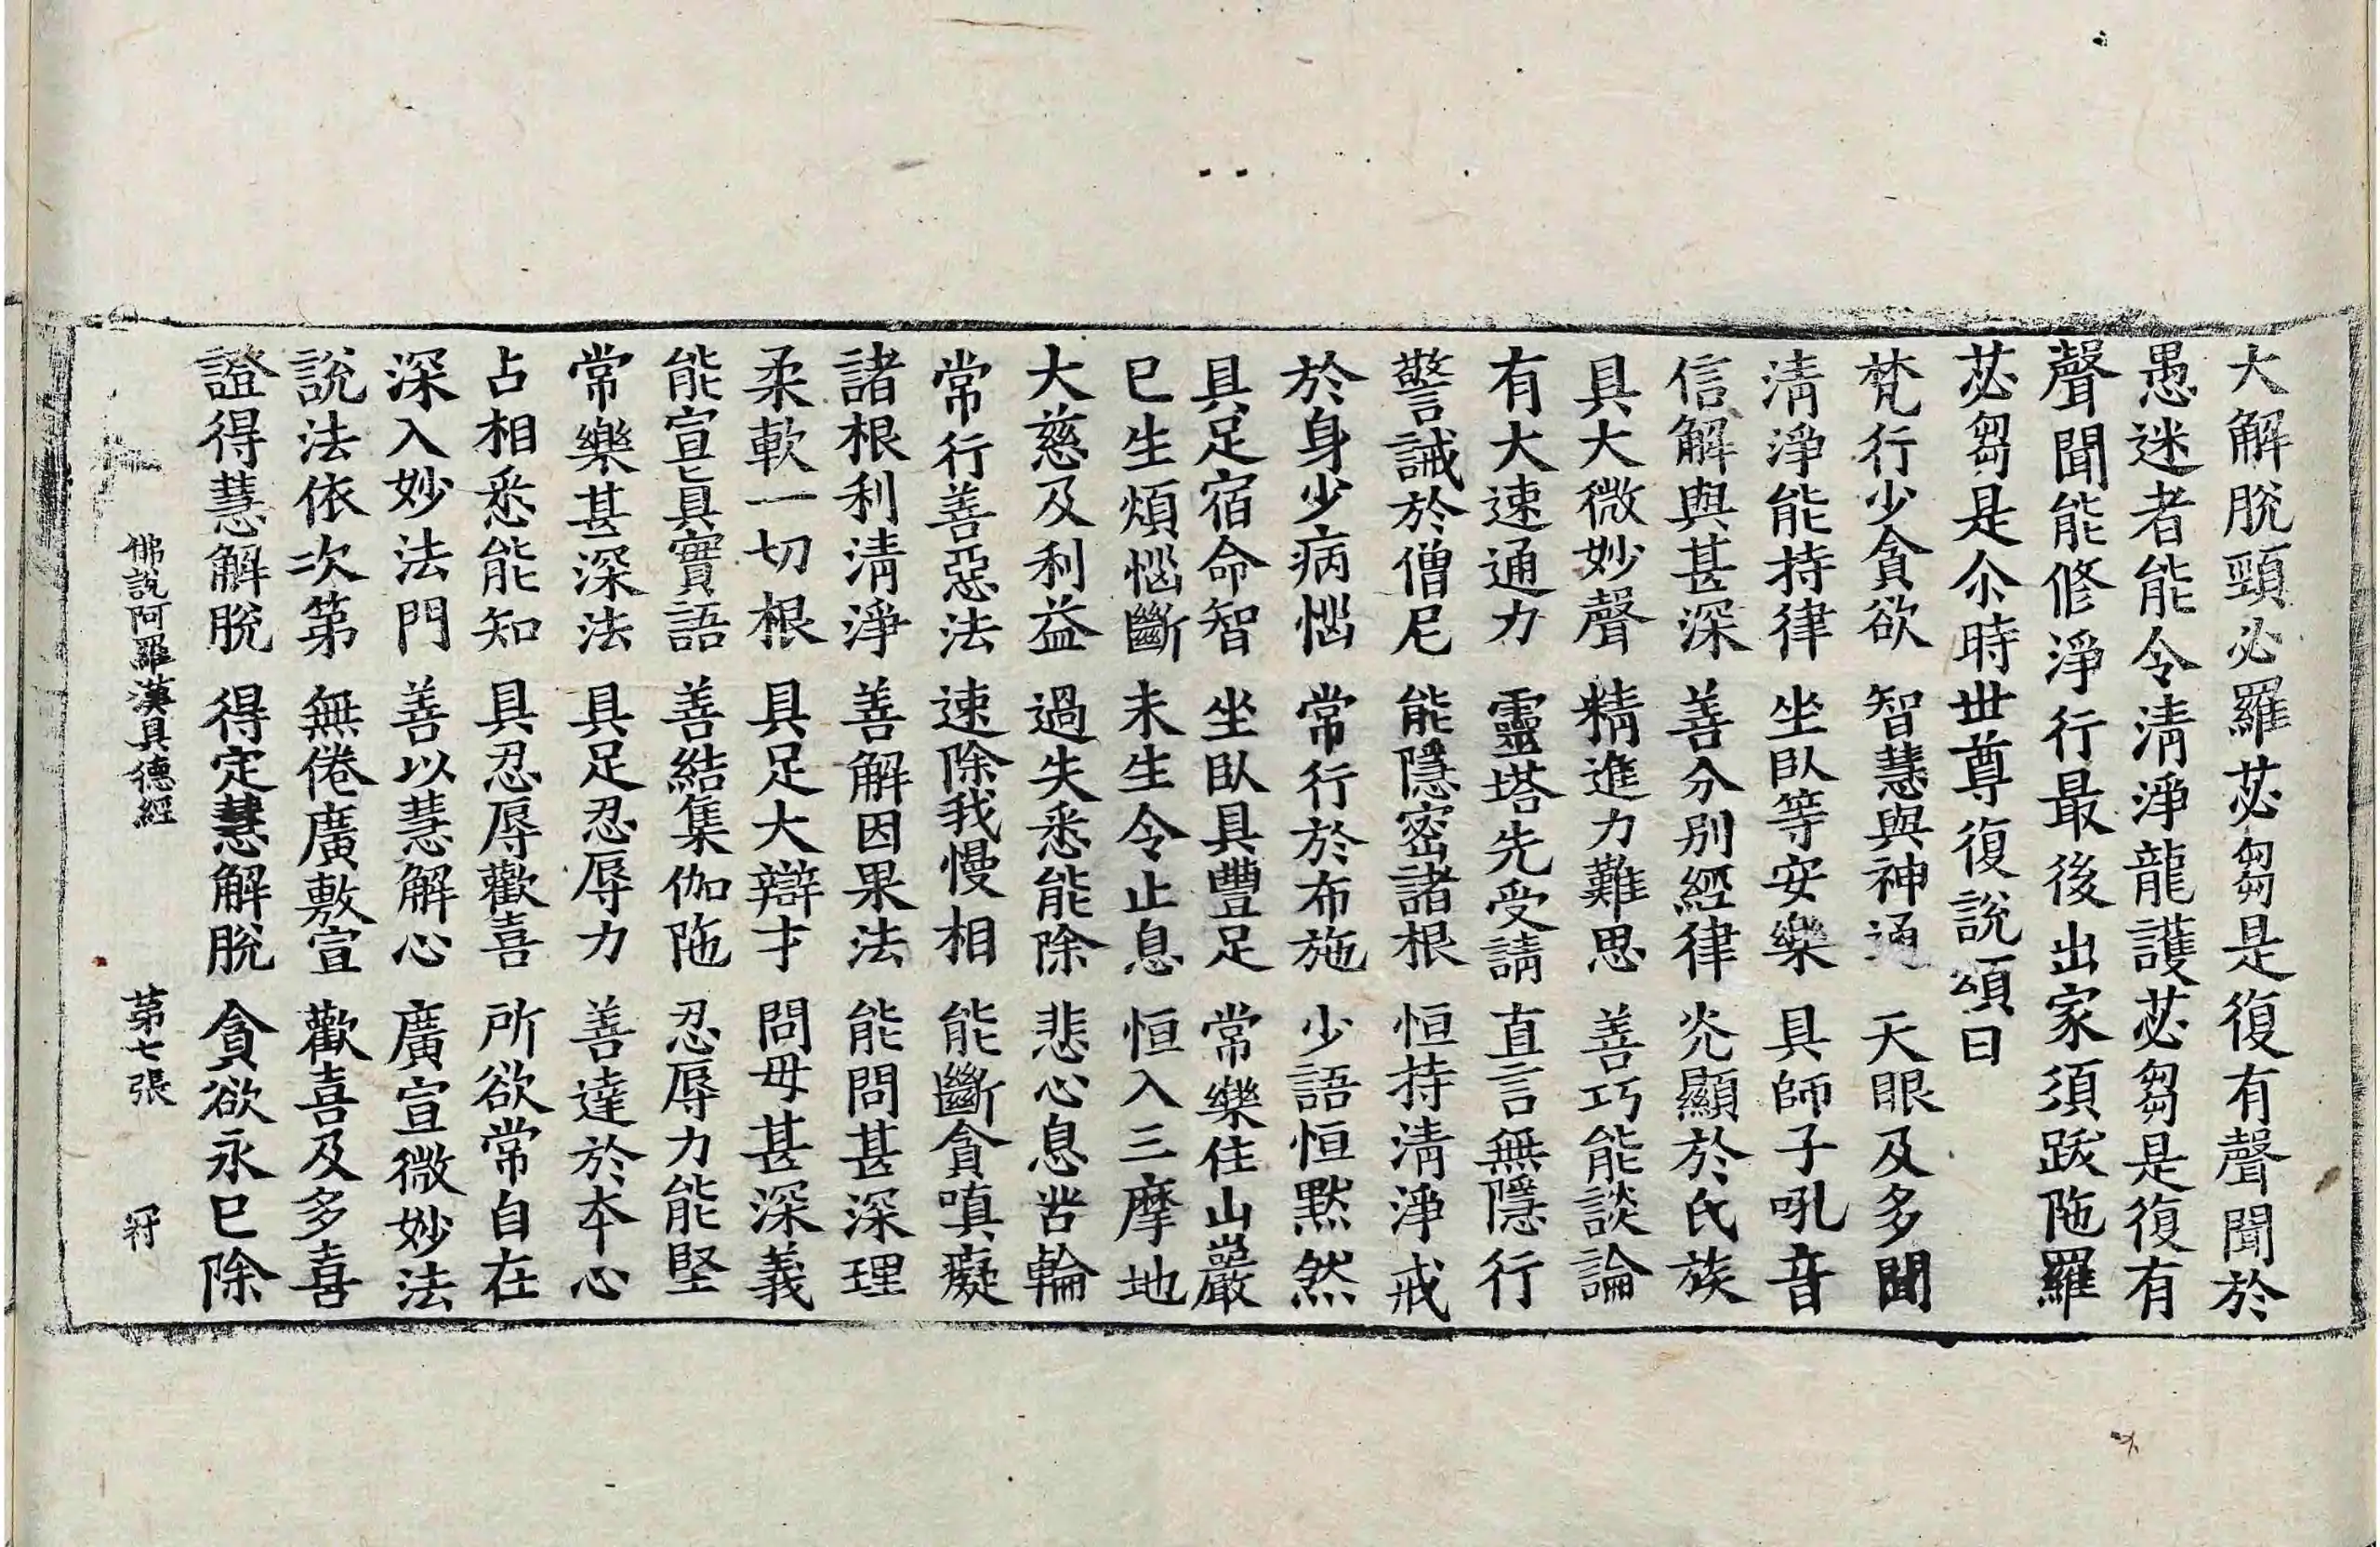 大解脫頸必羅苾芻是復有聲聞於
愚迷者能令淸淨龍護苾芻是復有
聲聞能修淨行最後出家須跋陁羅
苾芻是尒時世尊復說頌曰
梵行少貪欲 智慧與神通 天眼及多聞
淸淨能持律 坐臥等安樂 具師子吼音
信解與甚深 善分別經律 光顯於氏族
具大微妙聲 精進力難思 善巧能談論
有大速通力 靈塔先受請 直言無隱行
警誡於僧尼 能隱密諸根 恒持淸淨戒
於身少病惱 常行於布施 少語恒默然
具足宿命智 坐臥具豐足 常樂住山巖
已生煩惱斷 未生令止息 恒入三摩地
大慈及利益 過失悉能除 悲心息苦輪
常行善惡法 速除我慢相 能斷貪嗔癡
諸根利淸淨 善解因果法 能問甚深理
柔軟一切根 具足大辯才 問毋甚深義
能宣真實語 善結集伽陁 忍辱力能堅
常樂甚深法 具足忍辱力 善達於本心
占相悉能知 具忍辱歡喜 所欲常自在
深入妙法門 善以慧解心 廣宣微妙法
說法依次第 無倦廣敷宣 歡喜及多喜
證得慧解脫 得定慧解脫 貪欲永已除
佛說阿羅漢具德經 第七張 符